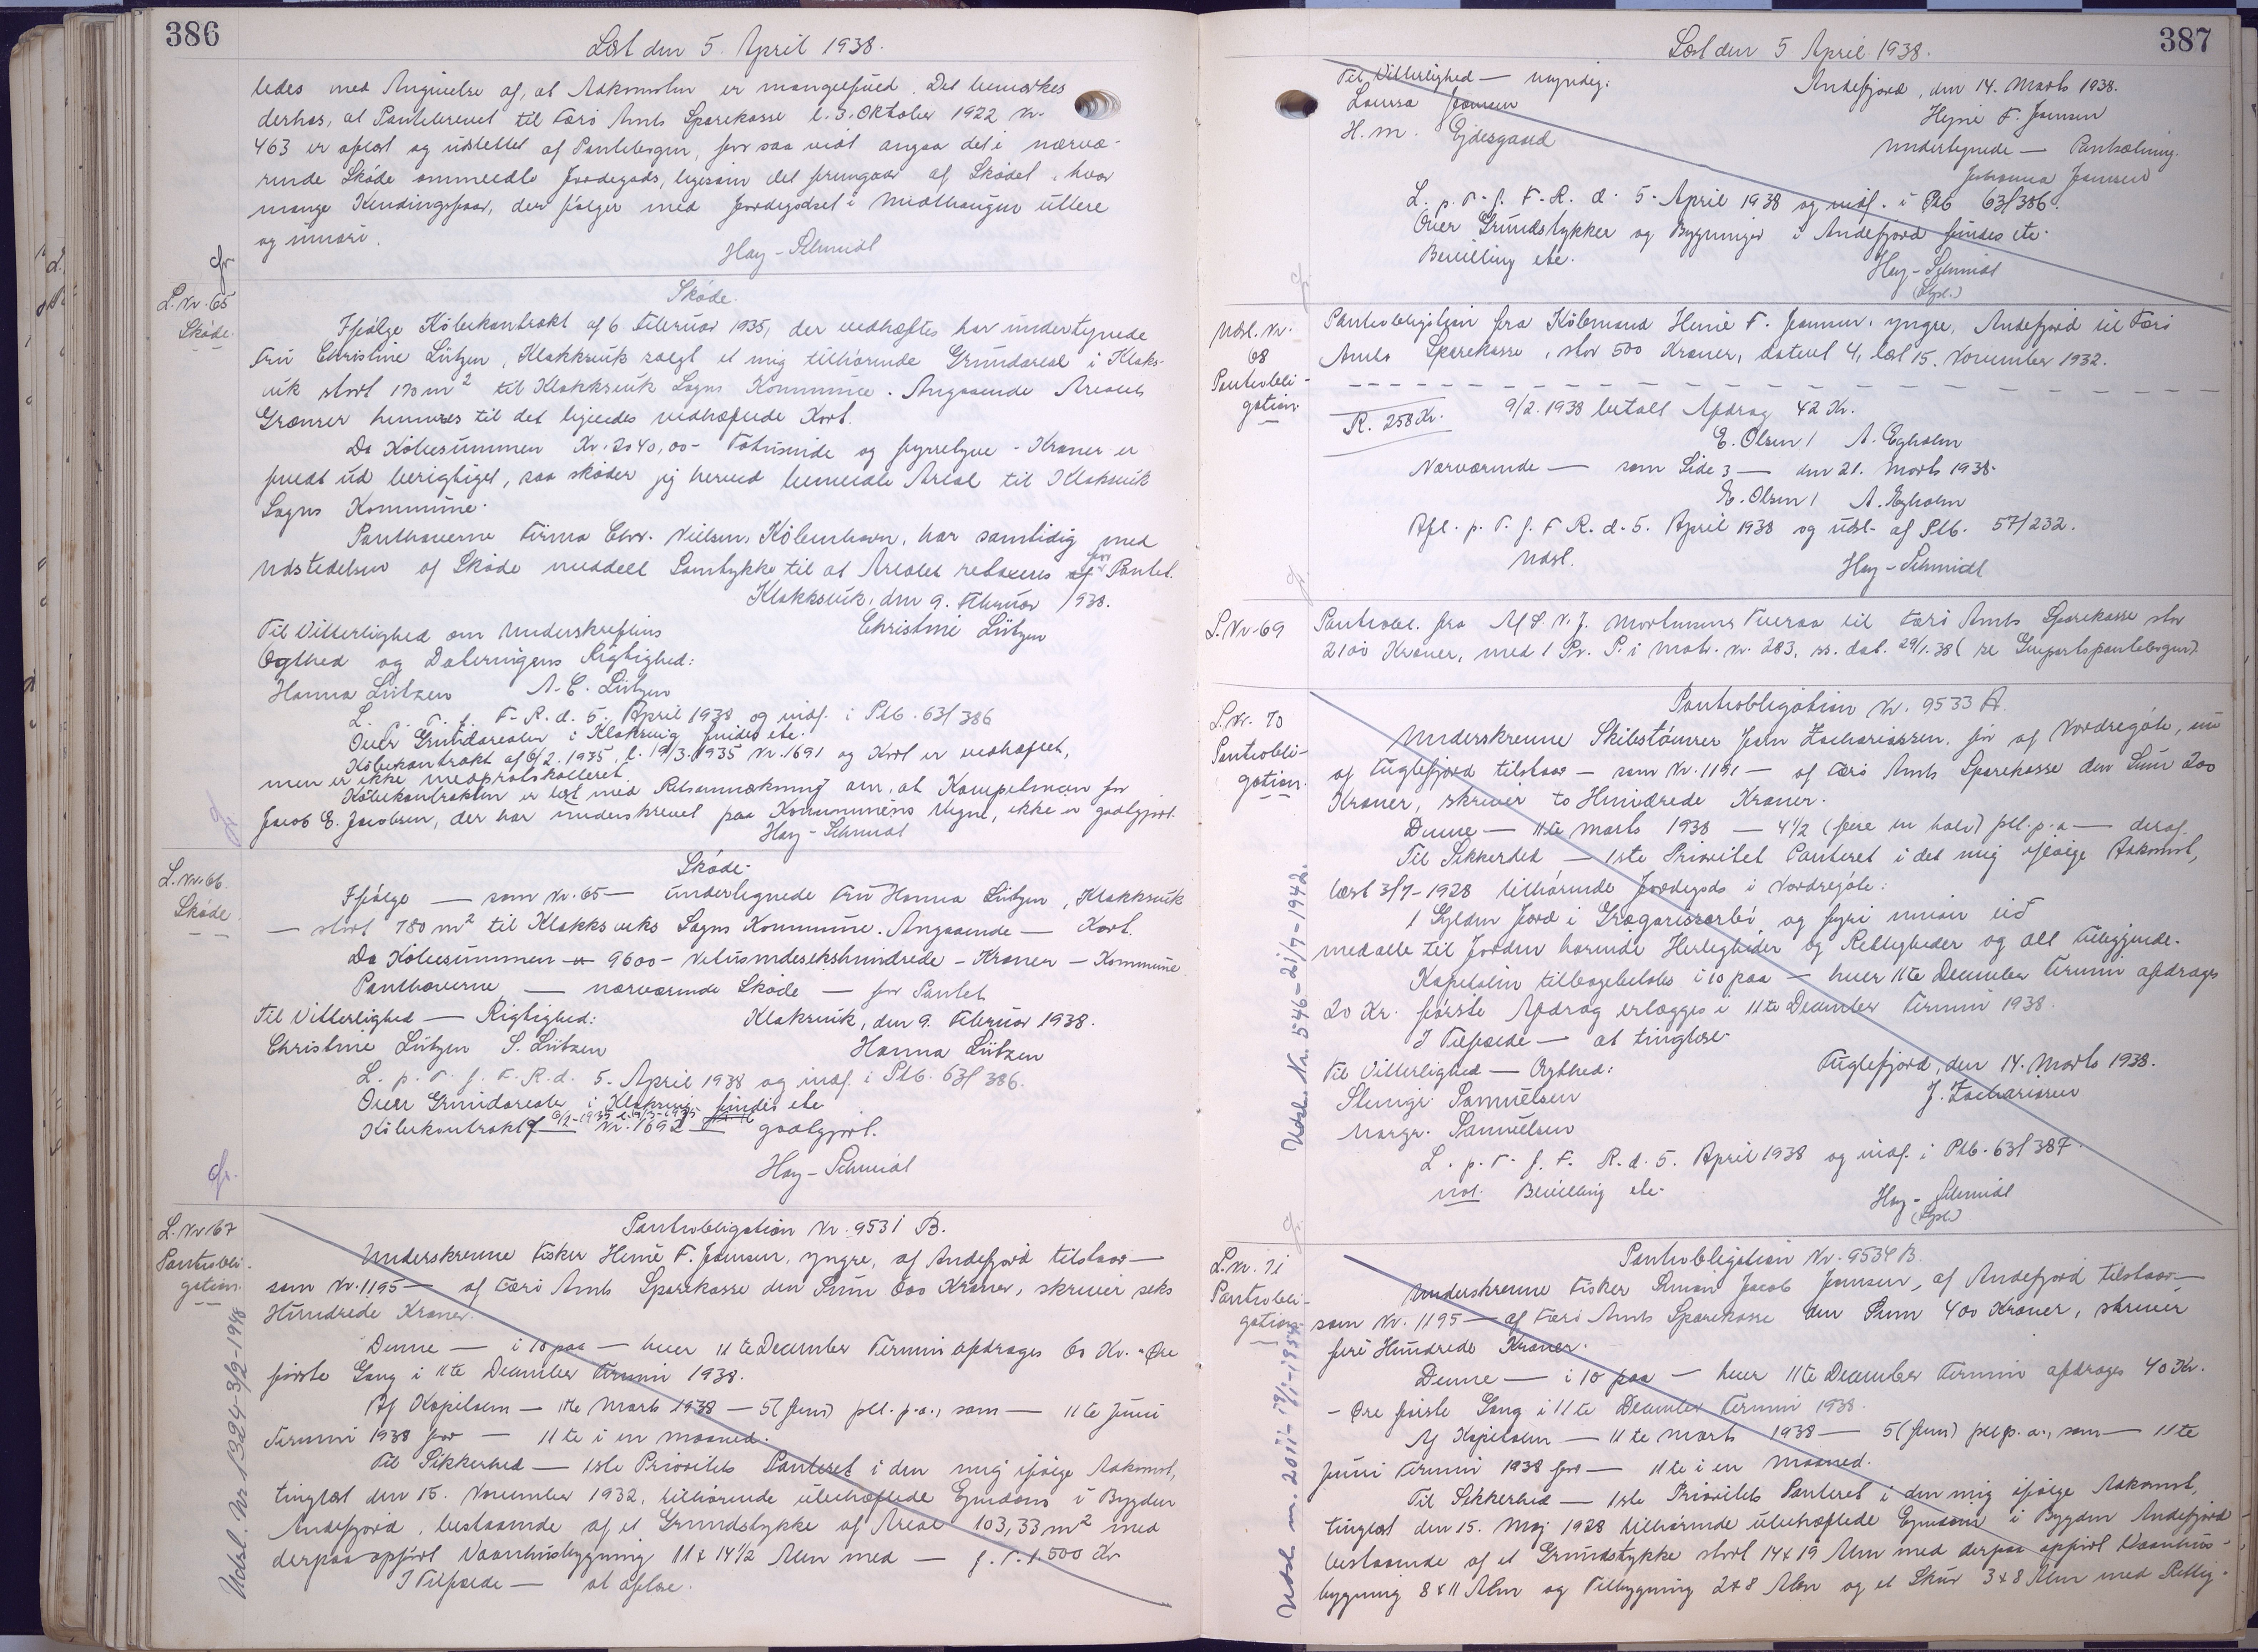 386
Læst den 5. April 1938.
ledes med Angivelse af, at Adkomsten er mangelfuld. Det bemærkes
derhos, at Pantebrevet til Færø Amts Sparekasse l. 3. Oktober 1922 Nr.
463 er aflæst og udslettet af Pantebogen, for saa vidt angaar det i nærvæ-
rende Skøde ommeldte Jordegods, ligesom det fremgaar af Skødet, hvor
mange Kendingsfaar, der følger med Jordegodset i Midthaugen uttere
og innari.
Hay-Schmidt
L. Nr. 65
Skøde.
Skøde.
Ifølge Købekontrakt af 6 Februar 1935, der vedhæftes har undertegnede
Fru Christine Lützen, Klakksvik solgt et mig tilhørende Grundareal i Klaks-
vik stort 170 m² til Klakksvik Sogns Kommune. Angaaende Arealets
Grænser henvises til det ligeledes vedhæftede Kort.
Da Købesummen Kr. 2040,00 - Totusinde og fyrretyve - Kroner er
fuldt ud berigtiget, saa skøder jeg herved bemeldte Areal til Klaksvik
Sogns Kommune.
Panthaverne Firma Chr. Nielsen, København, har samtidig med
Udstedelsen af Skøde meddelt Samtykke til at Arealet relaxeres for Pantet.
Klakksvik, den 9. Februar 1938.
Til Vitterlighed om Underskriftens
Christine Lützen
Ægthed og Dateringens Rigtighed:
Hanna Lützen A. C. Lützen
L. p. T. f. F. R. d. 5. April 1938 og indf. i Ptb. 63/386
Over Grundarealer i Klaksvig findes etc.
Købekontrakt af 6/2. 1935, l. 19/3. 1935 Nr. 1691 og Kort er vedhæftet,
men er ikke medprotokolleret.
Købekontrakten er læst med Retsanmærkning om, at Kompetencen for
Jacob E. Jacobsen, der har underskrevet paa Kommunens Vegne, ikke er godtgjort.
Hay-Schmidt
L. Nr. 66.
Skøde.
Skøde.
Ifølge — som Nr. 65 — undertegnede Fru Hanna Lützen, Klakksvik
— stort 780 m² til Klakksviks Sogns Kommune. Angaaende — Kort.
Da Købesummen 9600 - Nitusindesekshundrede - Kroner - Kommune
Panthaverne — nærværende Skøde — for Pantet
Til Vitterlighed — Rigtighed:
Klaksvik, den 9. Februar 1938.
Christine Lützen S. Lützen
Hanna Lützen
L. p. T. f. F. R. d. 5. April 1938 og indf. i Ptb. 63/386.
Over Grundarealer i Klaksvig findes etc
Købekontrakt af 6/2-1935 l. 19/3-1935 Nr. 1692 — godtgjort.
Hay-Schmidt
L. Nr. 67
Pantobli-
gation.
Pantobligation Nr. 9531 B.
Underskrevne Fisker Heine F. Joensen, yngre, af Andefjord tilstaar —
som Nr. 1195 — af Færø Amts Sparekasse den Sum 600 Kroner, skriver seks
Hundrede Kroner.
Denne — i 10 paa — hver 11te December Termin afdrages 60 Kr. - Øre
første Gang i 11te December Termin 1938.
Af Kapitalen — 11te Marts 1938 — 5 (fem) pct. p.a., som — 11te Juni
Termin 1938 for — 11te i en maaned.
Til Sikkerhed — 1ste Prioritets Panteret i den mig ifølge Adkomst,
tinglæst den 15. November 1932, tilhørende ubehæftede Ejendom i Bygden
Andefjord, bestaaende af et Grundstykke af Areal 103,33 m² med
derpaa opført Vaanhusbygning 11 x 14½ Alen med — f. T. 1.500 Kr
I Tilfælde — at aflæse.
Udsl. Nr. 1324-3/2-1948
387
Læst den 5. April 1938.
Til Vitterlighed — myndig:
Andefjord, den 14. Marts 1938.
Laursa Joensen
Heine F. Joensen
H. M. Ejdesgaard
Undertegnede — Pantsætning.
Johanna Joensen
L. p. T. f. F. R. d. 5. April 1938 og indf. i Ptb 63/386.
Over Grundstykker og Bygninger i Andefjord findes etc.
Bevilling etc.
Hay-Schmidt
Udsl. Nr.
68
Pantobli-
gation
Pantobligation fra Købmand Heine F. Joensen, yngre, Andefjord til Færø
Amts Sparekasse, stor 500 Kroner, dateret 4, læst 15. November 1932.
R. 258 Kr.
9/2. 1938 betalt Afdrag 42 Kr.
E. Olsen / A. Egholm
Nærværende — som Side 3 — den 21. Marts 1938.
E. Olsen / A. Egholm
Afl. p. T. f. F. R. d. 5. April 1938 og udsl. af Ptb. 57/232.
Udsl.
Hay-Schmidt
L. Nr. 69
Pantobl. fra Af S. V. J. Mortensens Tveraa til Færø Amts Sparekasse stor
2100 Kroner, med 1 Pr. P. i Matr. Nr. 283, ss. dat. 29/1.38 (se Genpartspantebogen).
L. Nr. 70
Pantobli-
gation.
Pantobligation Nr. 9533 A.
Underskrevne Skibstømrer Joen Zachariassen, før af Nordregøte, nu
af Fuglefjord tilstaar — som Nr. 1191 — af Færø Amts Sparekasse den Sum 200
Kroner, skriver to Hundrede Kroner.
Denne — 11te Marts 1938 — 4½ (fire en halv) pct. p.a — deraf.
Til Sikkerhed — 1ste Prioritet Panteret i det mig ifølge Adkomst,
læst 3/7-1928 tilhørende Jordegods i Nordregøte:
1 Gylden Jord i Gregorissarbö og fyri innan eid
med alle til Jorden hørende Herligheder og Rettigheder og alt tilliggende.
Kapitalen tilbagebetales i 10 paa — hver 11te December Termin afdrages
20 Kr. første Afdrag erlægges i 11te December Termin 1938.
I Tilfælde — at tinglæse
Til Vitterlighed — Ægthed:
Fuglefjord, den 14. Marts 1938.
Samuelsen
J. Zachariasen
Margr. Samuelsen
L. p. T. f. F. R. d. 5. April 1938 og indf. i Ptb. 63/387.
Bevilling etc.
Hay-Schmidt
Udsl. Nr. 546-21/7-1942.
L. Nr. 71
Pantobli-
gation
Pantobligation Nr. 9534 B.
Underskrevne Fisker Simon Jacob Joensen, af Andefjord tilstaar —
som Nr. 1195 — af Færø Amts Sparekasse den Sum 400 Kroner, skriver
fire Hundrede Kroner.
Denne — i 10 paa — hver 11te December Termin afdrages 40 Kr.
- Øre første Gang i 11te December Termin 1938.
Af Kapitalen — 11te Marts 1938 — 5 (fem) pct. p.a., som — 11te
Juni Termin 1938 for — 11te i en maaned.
Til Sikkerhed — 1ste Prioritets Panteret i den mig ifølge Adkomst,
tinglæst den 15. Maj 1928 tilhørende ubehæftede Ejendom i Bygden Andefjord
bestaaende af et Grundstykke stort 14 x 19 Alen med derpaa opført Vaanhus-
bygning 8 x 11 Alen og Tilbygning 2 x 8 Alen og et Skur 3 x 8 Alen med Rettig-